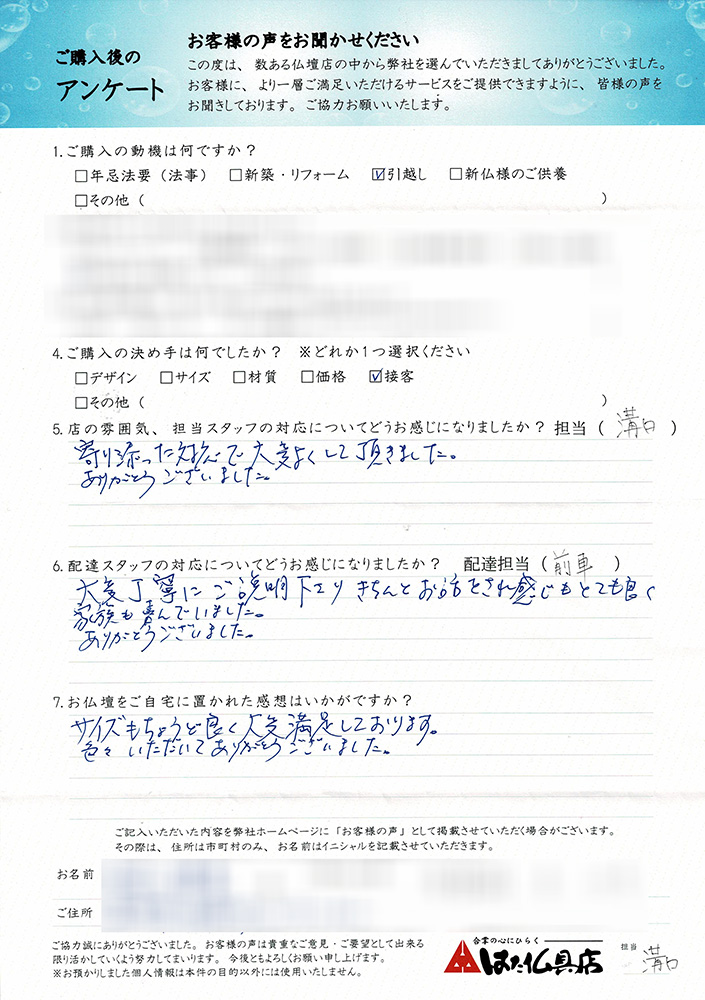 ご購入後の
アンケート
お客様の声をお聞かせください
この度は、数ある仏壇店の中から弊社を選んでいただきましてありがとうございました。
お客様に、より一層ご満足いただけるサービスをご提供できますように、皆様の声を
お聞きしております。ご協力お願いいたします。
1.ご購入の動機は何ですか？
□年忌法要（法事） □新築・リフォーム ☑引越し □新仏様のご供養
□その他（ ）
4.ご購入の決め手は何でしたか？ ※どれか1つ選択ください
□デザイン □サイズ □材質 □価格 ☑接客
□その他（ ）
5.店の雰囲気、担当スタッフの対応についてどうお感じになりましたか？ 担当（ 溝口 ）
寄り添った対応で大変よくして頂きました。
ありがとうございました。
6.配達スタッフの対応についてどうお感じになりましたか？ 配達担当（ 前車 ）
大変丁寧にご説明下さり きちんとお話をされ感じもとても良く
家族も喜んでいました。
ありがとうございました。
7.お仏壇をご自宅に置かれた感想はいかがですか？
サイズもちょうど良く大変満足しております。
色々いただいてありがとうございました。
ご記入いただいた内容を弊社ホームページに「お客様の声」として掲載させていただく場合がございます。
その際は、住所は市町村のみ、お名前はイニシャルを記載させていただきます。
お名前
ご住所
ご協力誠にありがとうございました。お客様の声は貴重なご意見・ご要望として出来る
限り活かしていくよう努力してまいります。今後ともよろしくお願い申し上げます。
※お預かりしました個人情報は本件の目的以外には使用いたしません。
合掌の心にひらく
はた仏具店
担当 溝口